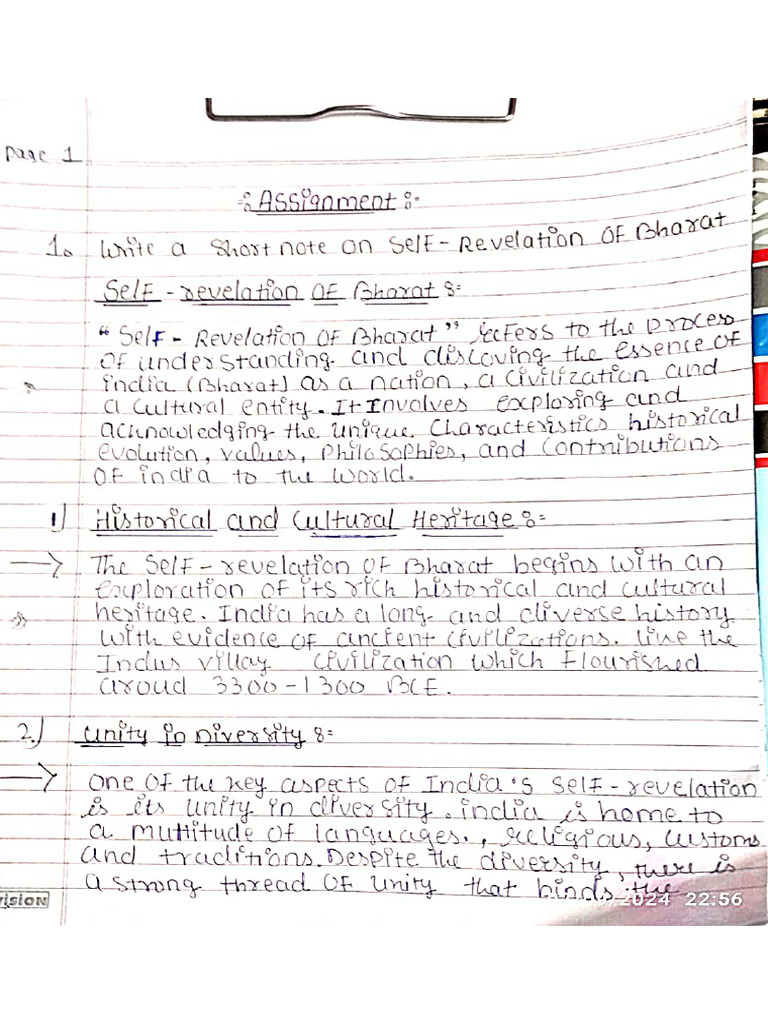 Page 1
Assignment :-
1. Write a short note on Self-Revelation of Bharat
Self-revelation of Bharat :-
"Self-Revelation of Bharat" refers to the process
of understanding and discoving the essence of
india (Bharat) as a nation, a civilization and
a cultural entity. It Involves exploring and
acknowledging the unique characteristics historical
evolution, values, philosophies, and contributions
of india to the world.
1) Historical and Cultural Heritage :-
→ The Self-revelation of Bharat begins with an
exploration of its rich historical and cultural
heritage. India has a long and diverse history
with evidence of ancient civilizations. like the
Indus villay civilization which flourished
aroud 3300-1300 BCE.
2.) Unity in Diversity :-
→ One of the key aspects of India's self-revelation
is its unity in diversity. india is home to
a multitude of languages., religious, customs
and traditions. Despite the diversity, there is
a strong thread of unity that binds the
vision
2024 22:56